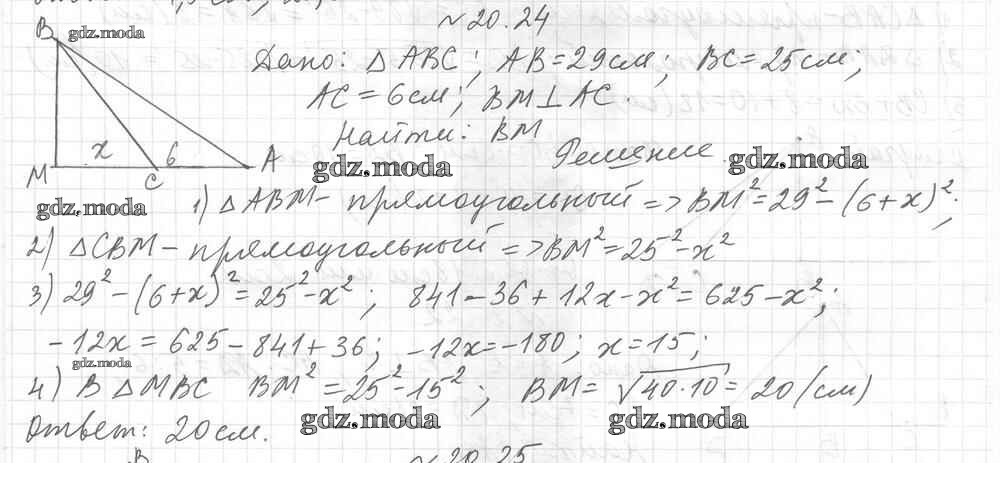 №20.24
B gdz.moda
Дано: △ABC; AB=29см; BC=25см;
AC=6см; BM⊥AC
Найти: BM
x 6 A
M C
gdz.moda Решение gdz.moda
gdz.moda
1) △ABM- прямоугольный => BM²=29²-(6+x)²;
2) △CBM- прямоугольный => BM²=25²-x²
3) 29²-(6+x)²=25²-x²; 841-36+12x-x²=625-x²;
-12x=625-841+36; -12x=-180; x=15;
gdz.moda
4) В △MBC BM²=25²-15²; BM=√40·10=20(см)
Ответ: 20см. gdz.moda gdz.moda
B №20.25